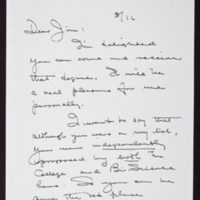 3/16
Dear Jim:
I'm delighted
you can come and receive
that degree. It will be
a real pleasure for me
personally.
I want to say that
although you were on my list,
you were independently
proposed by both the
College and Bio Science
here. So you can be
sure the red place